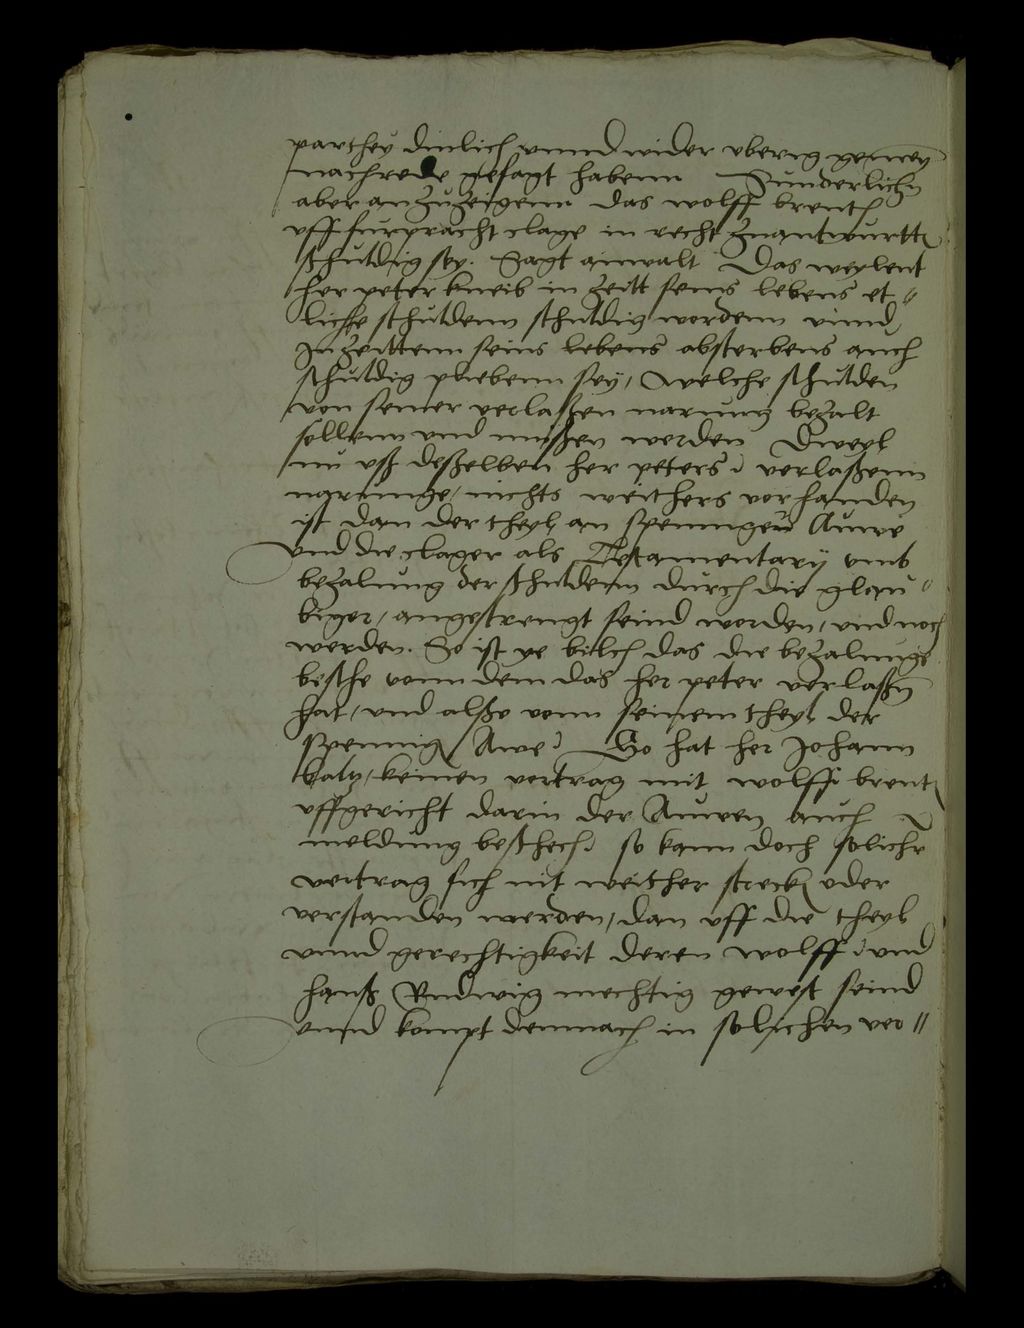 parthey dinlich unnd wider uberig gemey
nachrede gesagt habenn Sunderlichn
aber anzuzeigenn das wolff brentz
uff furpracht clage in recht zuantwurtt
schuldig sey. Sagt anwalt Das weylent
her peter kneib in zeitt seins lebens et„
liche schuldenn schuldig wordenn unnd
In zeittenn seins lebens absterbens auch
schuldig pliebenn sey, Welche schulden
von seiner verlaßen narung bezalt
sollenn und mußen werden Dweyl
nu uß deßelben her peters verlaßenn
narunge, nichts weithers vorhanden
ist dan der theyl an spenniger Auwe
und die clager als Testamentary umb
bezalung der schuldenn durch die glau„
biger, angestrengt seind worden, und noch
werden. So ist ye bilch das die bezalunge
besche vonn dem das her peter verlaßn
hat, und alßo vonn seinem theyl der
spennig Awe So hat her Johann
keinen vertrag mit wolff brent
uffgericht darin der Auwen auch
meldung beschech so kann doch solicher
vertrag sich nit weither streck oder
verstanden werden, dan uff die theyl
unnd gerechtigkeit deren wolff und
hanß Ludwig mechtig gewest seind
unnd kompt demnach in solichen ver„